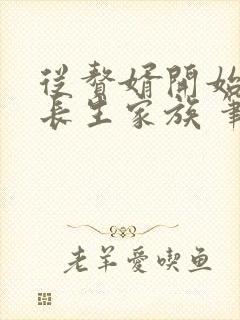 從贅婿開始
長生家族 筆
老羊愛喫鱼